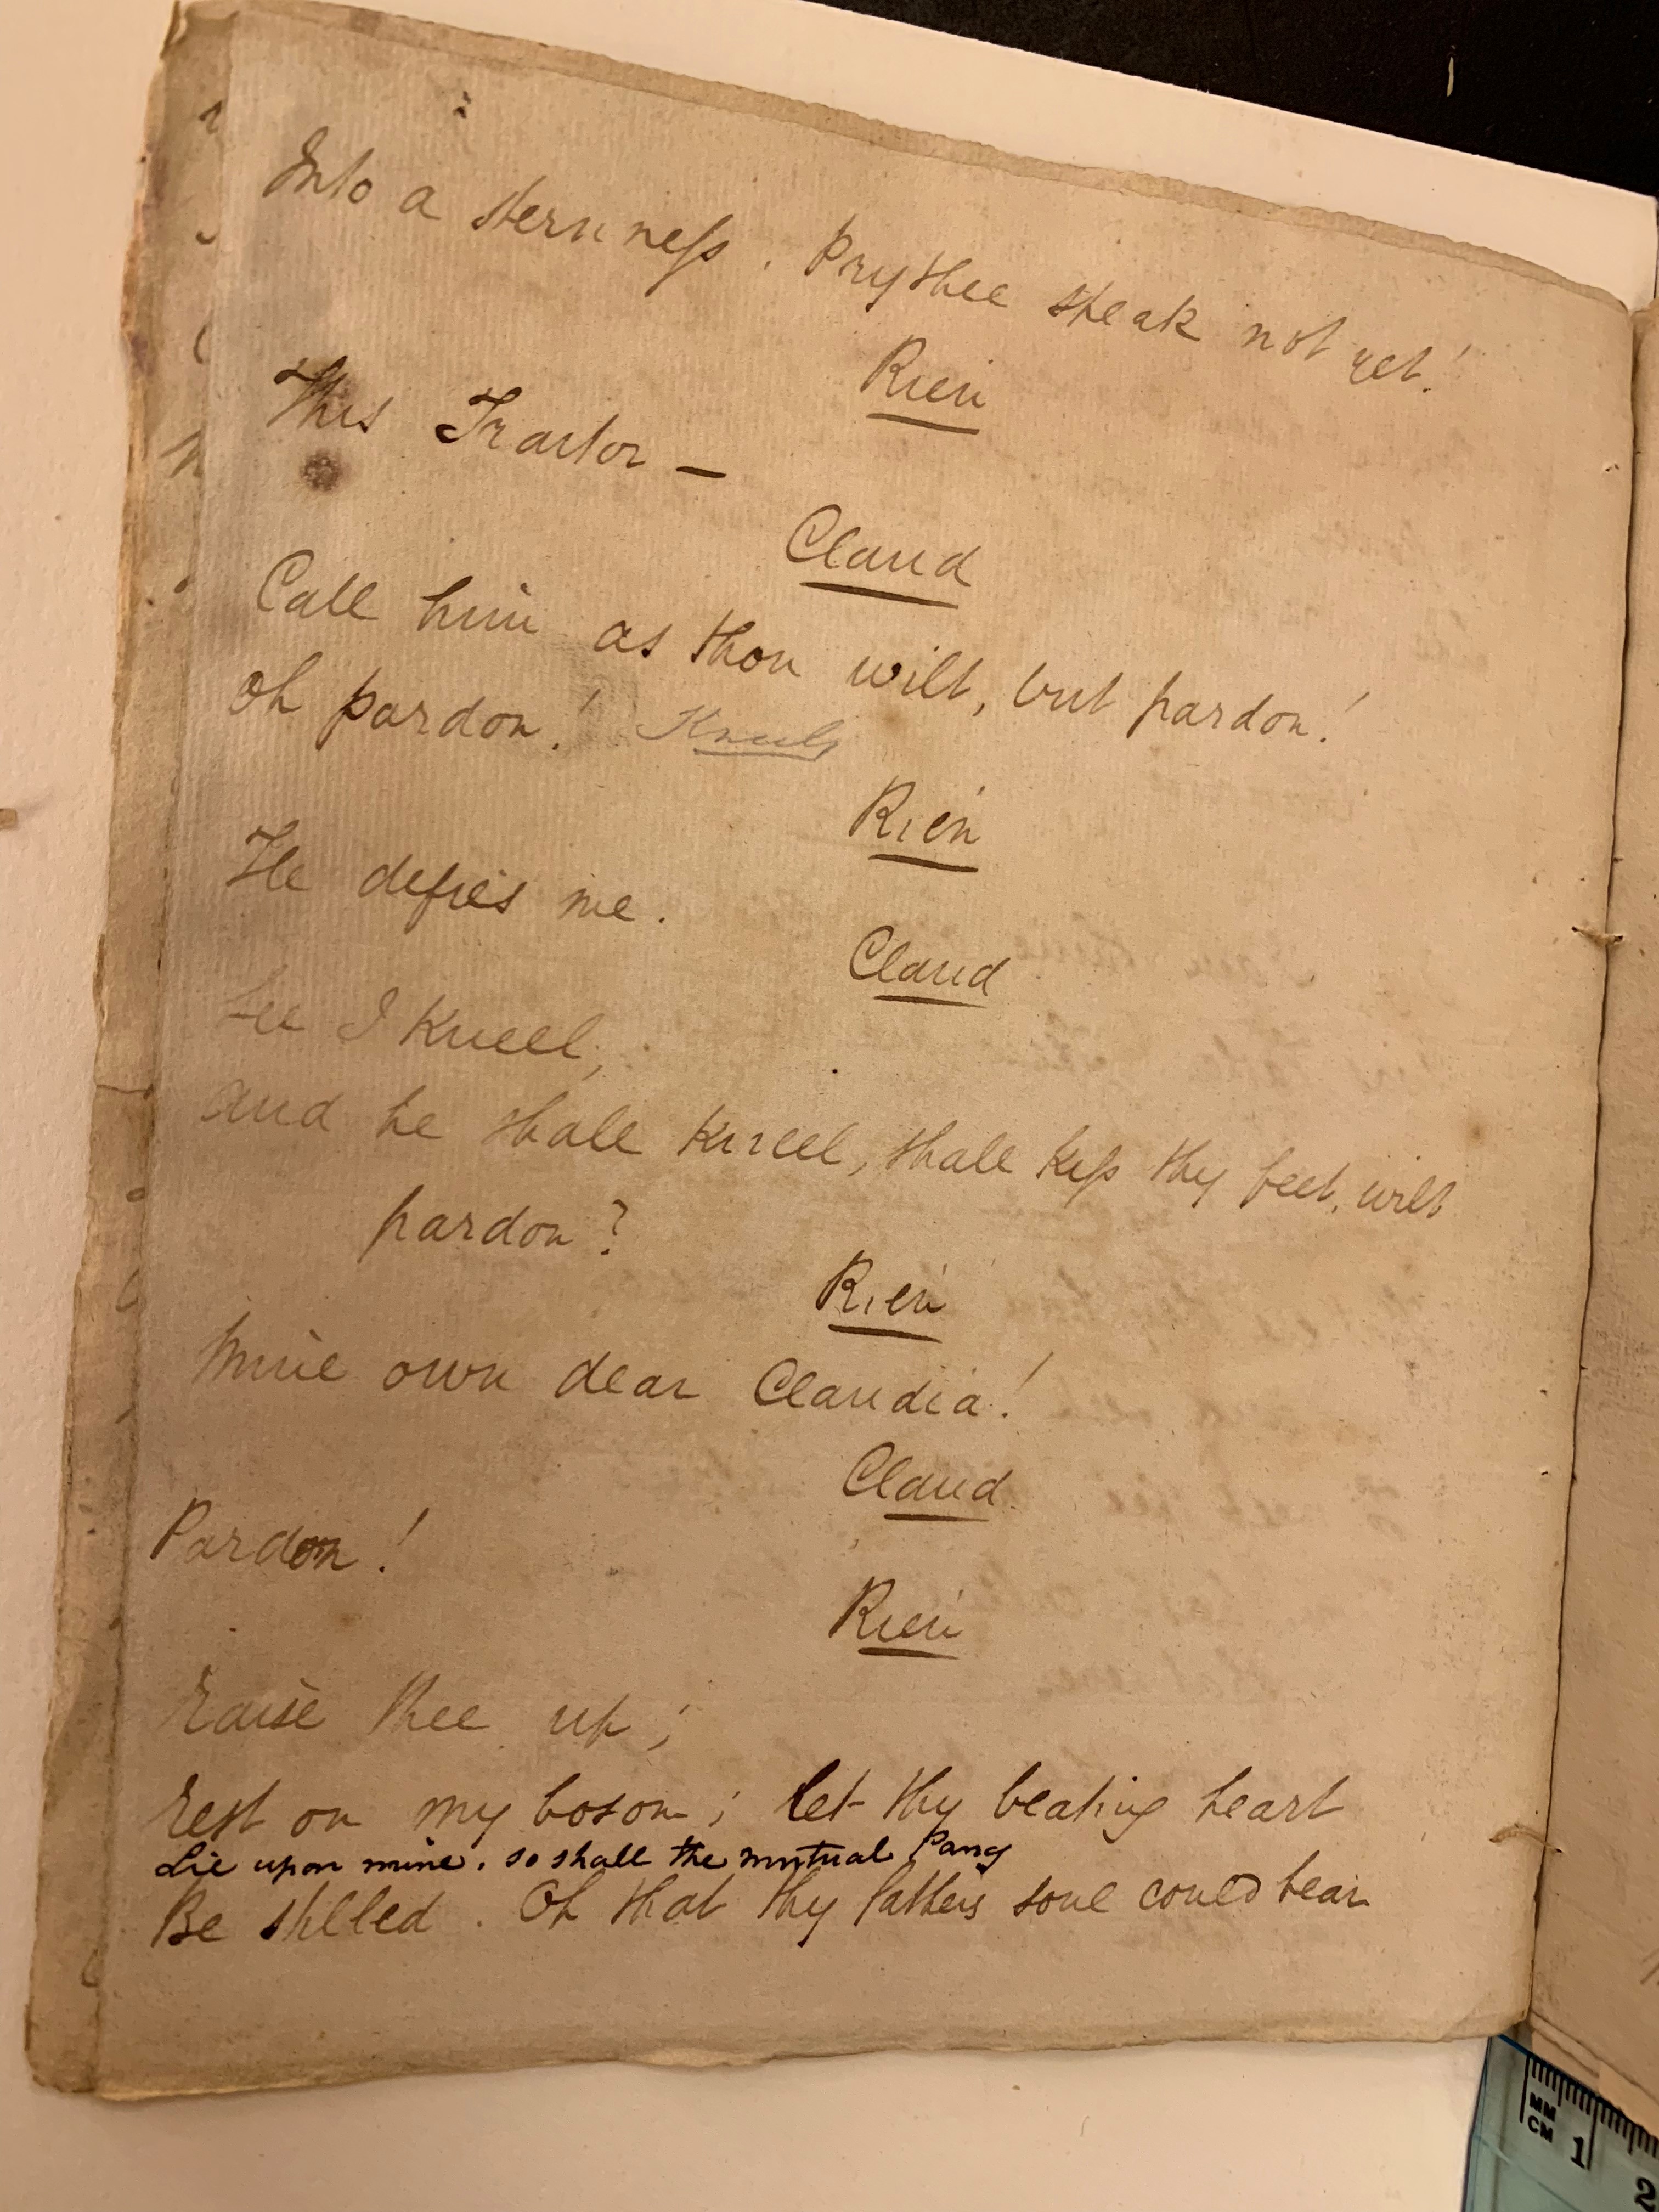 Into a sternness. Prythee speak not yet!
Rien
This Traitor —
Claud
Call him as thou wilt, but pardon!
oh pardon! Kneels
Rien
He defies me.
Claud
See I kneel,
and he shall kneel, shall kiss thy feet, wilt
pardon?
Rien
Mine own dear Claudia!
Claud
Pardon!
Rien
Raise thee up;
Rest on my bosom; let thy beating heart
Lie upon mine. so shall the mutual Pang
Be stilled. Oh that thy fathers soul could bear
MM
CM 1
2